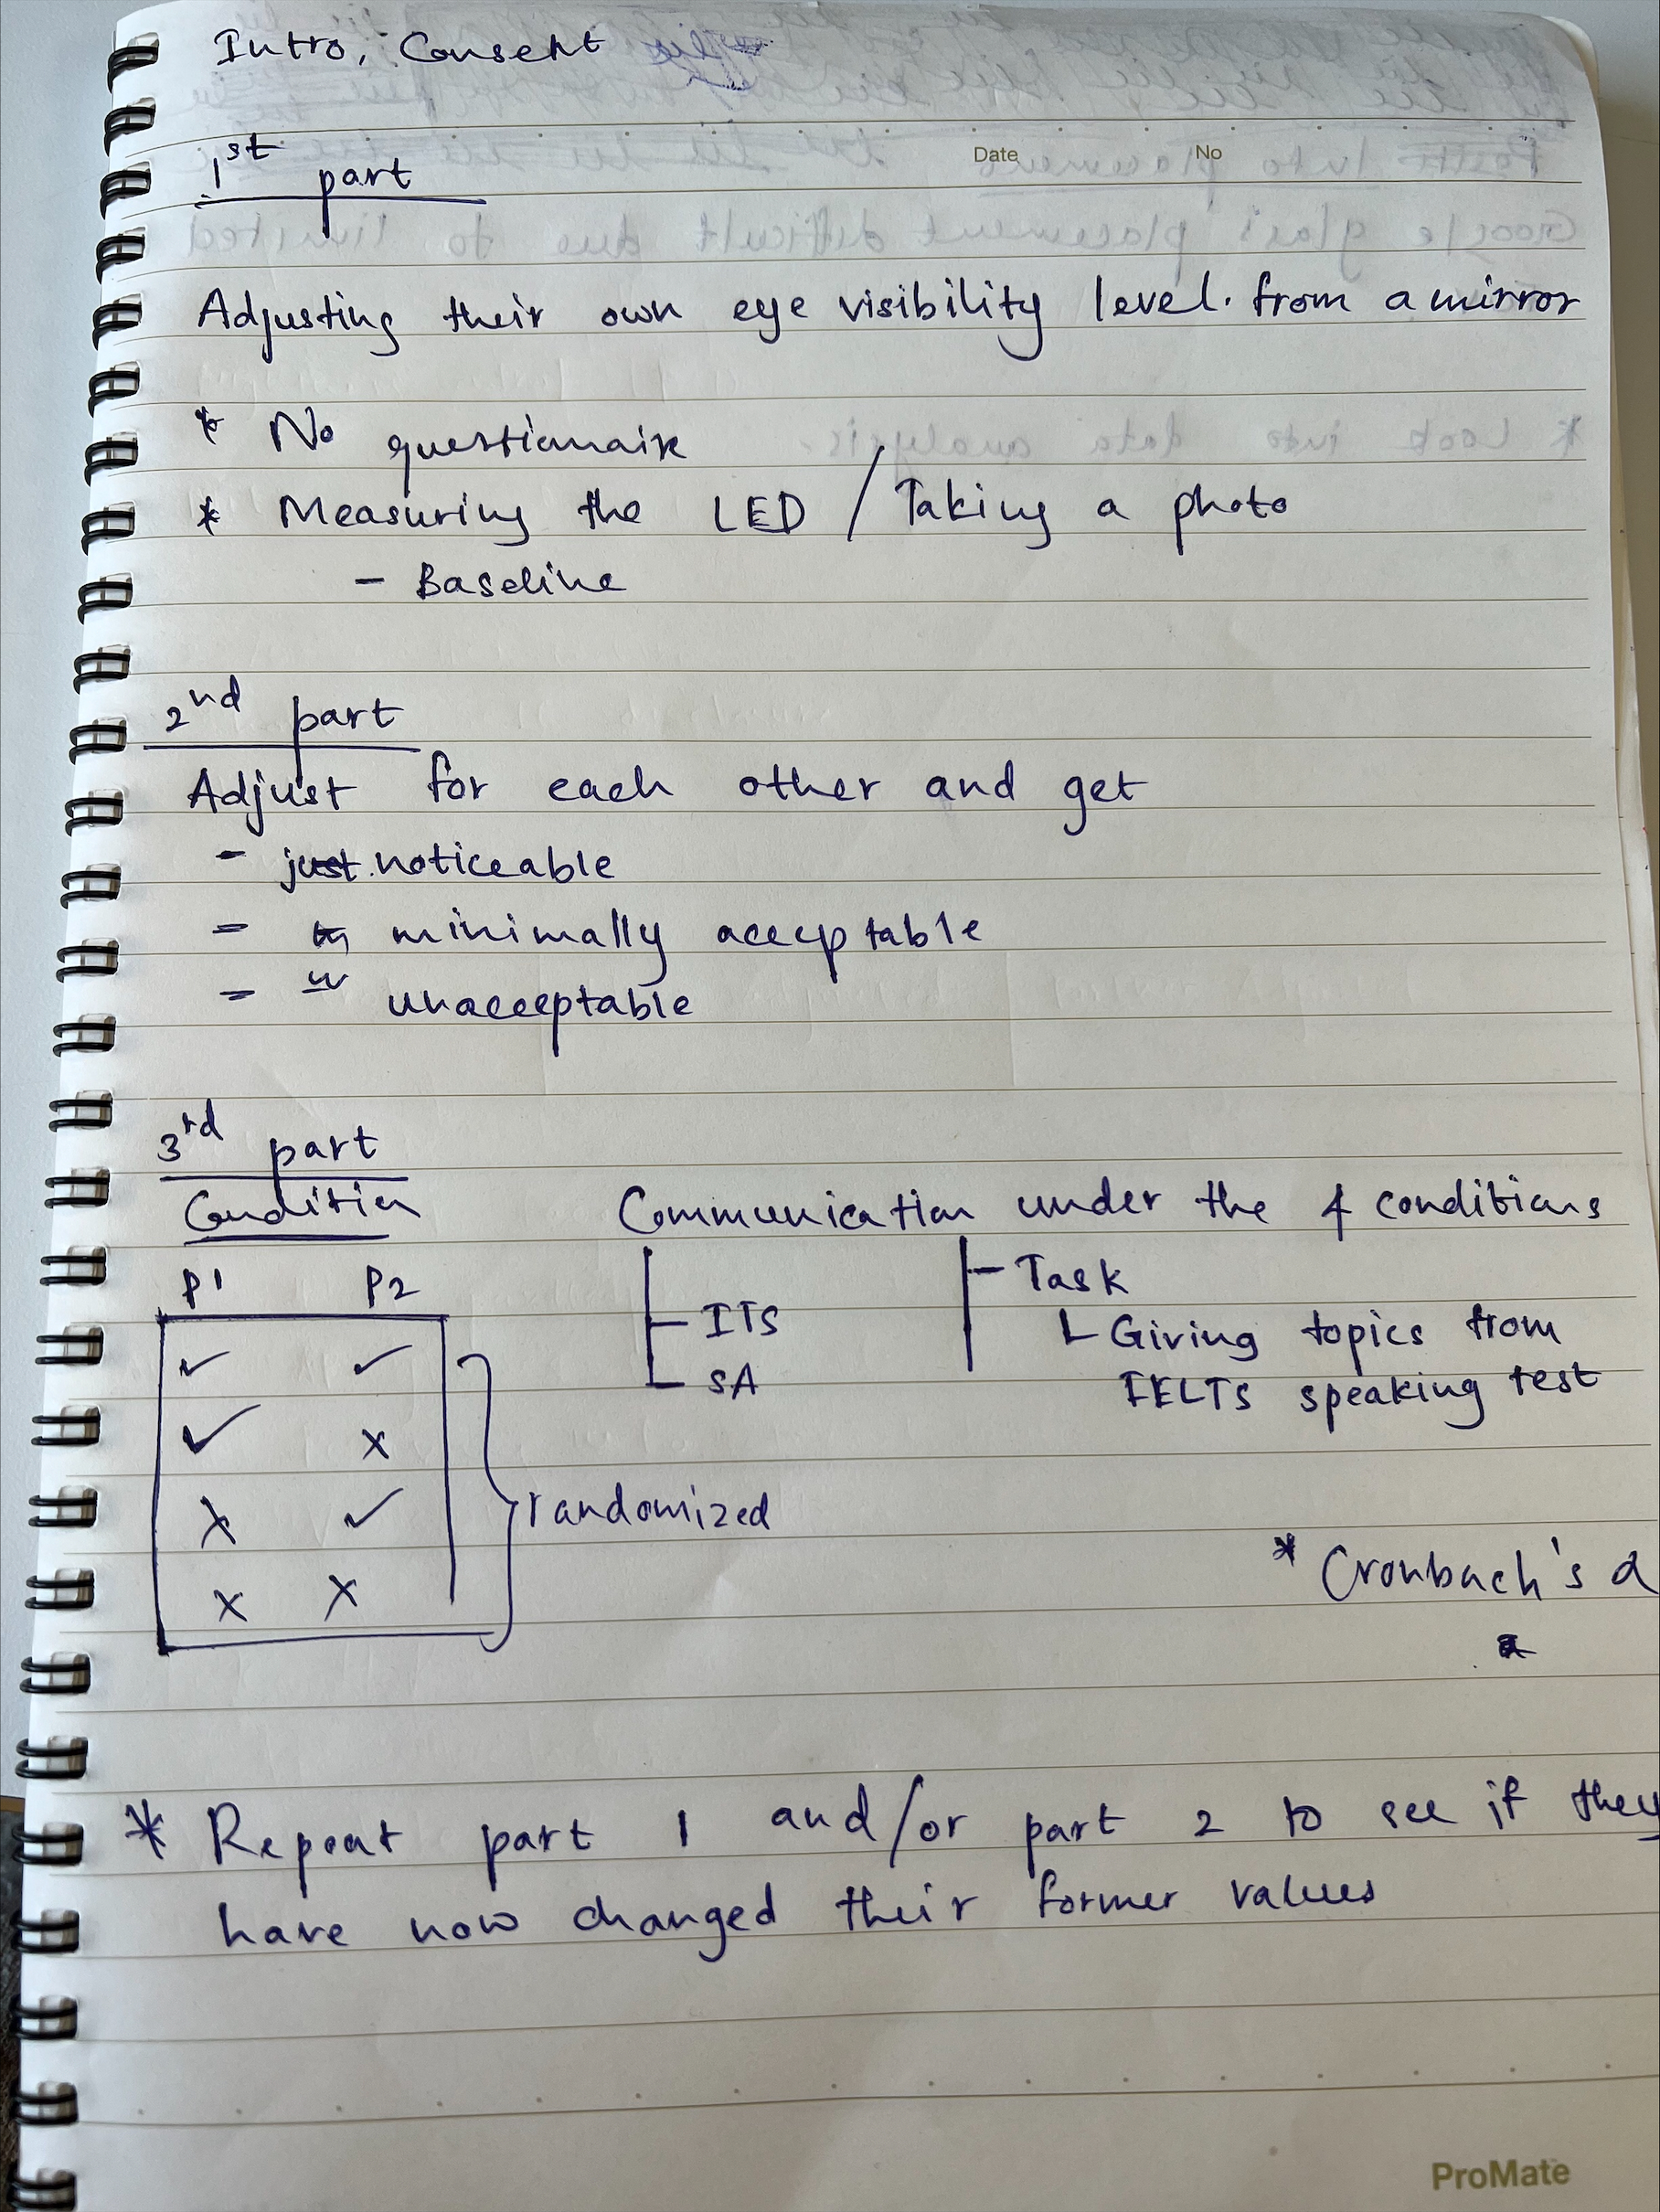 Intro, Consent
Date No
1st part
Adjusting their own eye visibility level. from a mirror
* No questionnaire
* Measuring the LED / Taking a photo
- Baseline
2nd part
Adjust for each other and get
- just noticeable
= minimally acceptable
= unacceptable
3rd part
Condition
Communication under the 4 conditions
P1 P2
ITS
SA
Task
Giving topics from
IELTS speaking test
✓ ✓
✓ x
x ✓
x x
randomized
* Cronbach's α
* Repeat part 1 and/or part 2 to see if they
have now changed their former values
ProMate